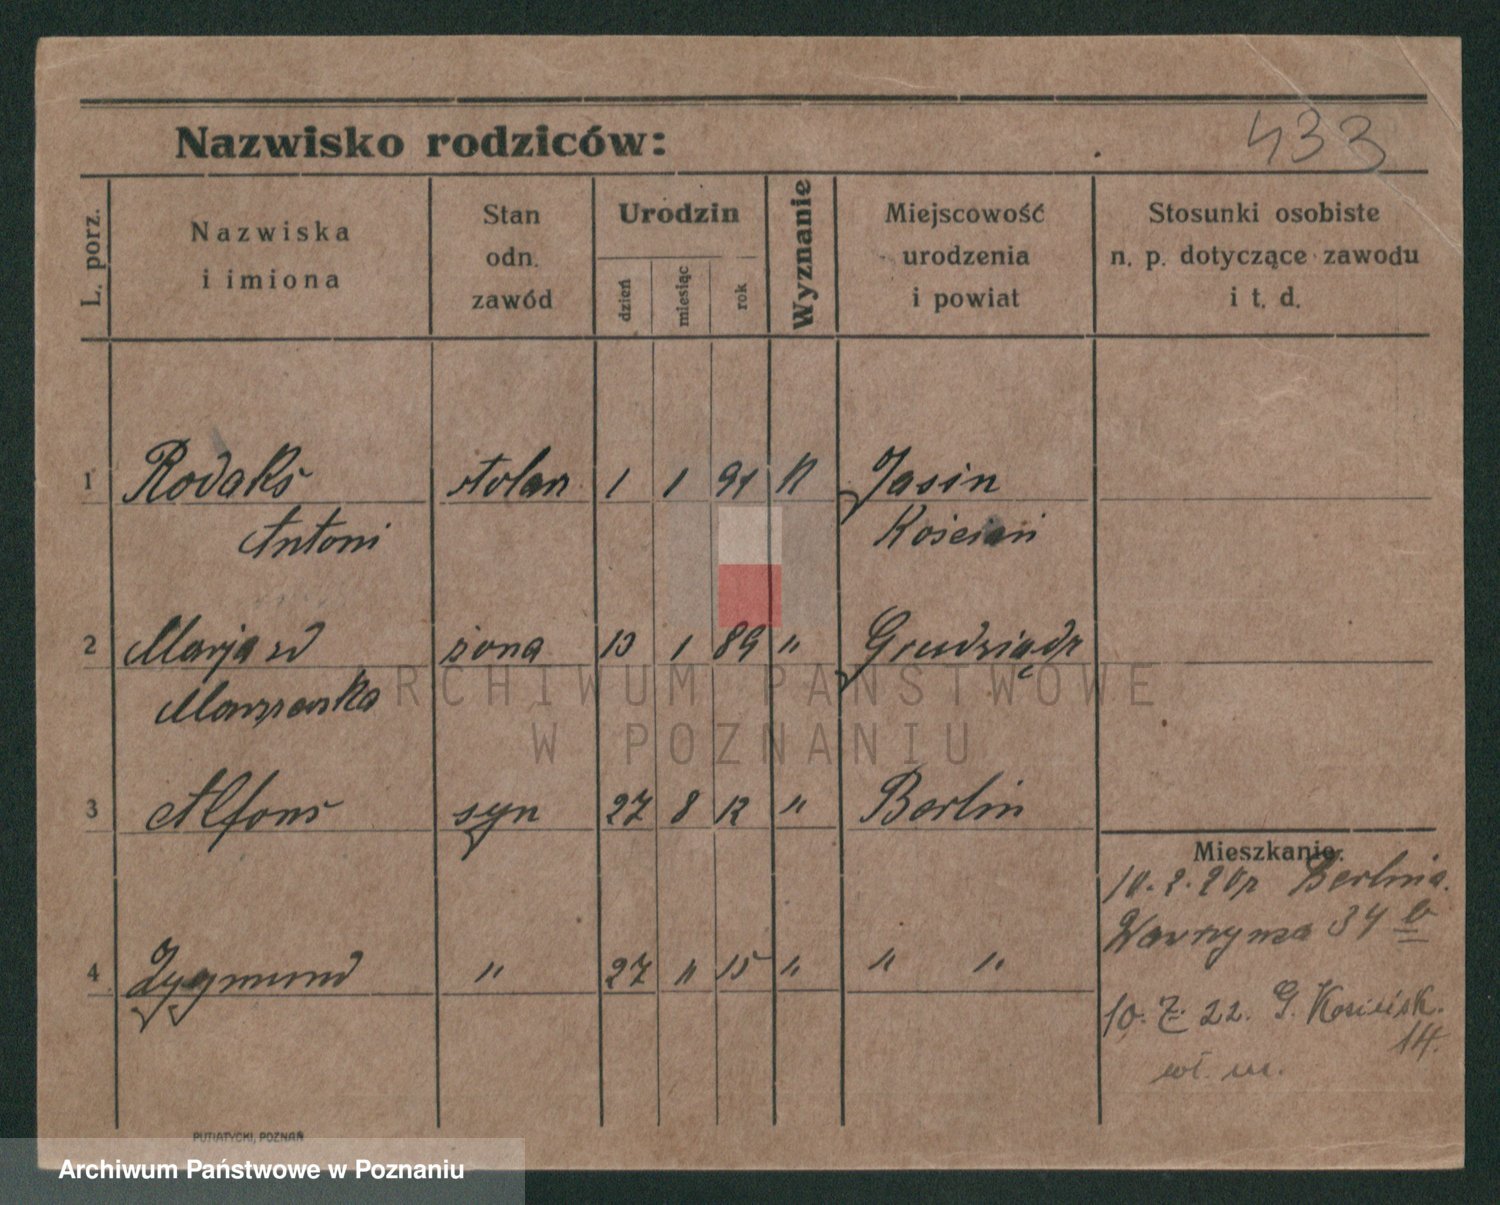 433
Nazwisko rodziców:
L. porz.
Nazwiska
i imiona
Stan
odn.
zawód
Urodzin
dzień
miesiąc
rok
Wyznanie
Miejscowość
urodzenia
i powiat
Stosunki osobiste
n. p. dotyczące zawodu
i t. d.
1 Rodaks stolarz 1 1 91 K Jasin
Antoni Kościan
2 Marja zd żona 13 1 89 " Grudziądz
3 Alfons syn 27 8 12 " Berlin
Mieszkanie:
10. 2. 20 z Berlina.
Wawrzyńca 34 b
4 Zygmund " 27 " 15 " " "
10. 7. 22. G.
14.
wł. m.
PUTIATYCKI, POZNAŃ
ARCHIWUM PAŃSTWOWE
W POZNANIU
Archiwum Państwowe w Poznaniu